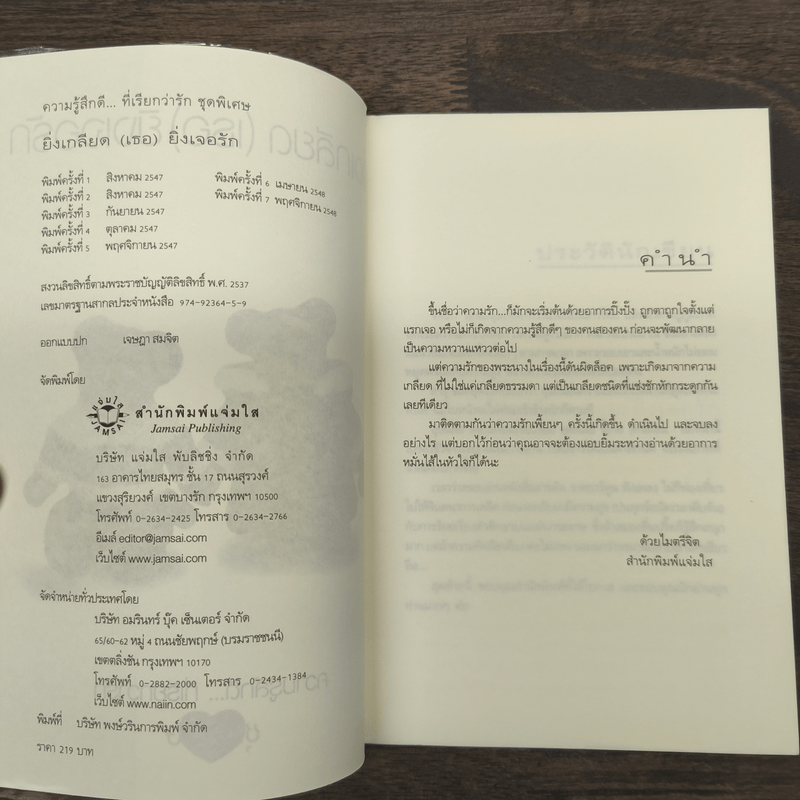 ความรู้สึกดี... ที่เรียกว่ารัก ชุดพิเศษ
ยิ่งเกลียด (เธอ) ยิ่งเจอรัก
พิมพ์ครั้งที่ 1 สิงหาคม 2547
พิมพ์ครั้งที่ 2 สิงหาคม 2547
พิมพ์ครั้งที่ 3 กันยายน 2547
พิมพ์ครั้งที่ 4 ตุลาคม 2547
พิมพ์ครั้งที่ 5 พฤศจิกายน 2547
พิมพ์ครั้งที่ 6 เมษายน 2548
พิมพ์ครั้งที่ 7 พฤศจิกายน 2548
สงวนลิขสิทธิ์ตามพระราชบัญญัติลิขสิทธิ์ พ.ศ. 2537
เลขมาตรฐานสากลประจำหนังสือ 974-92364-5-9
ออกแบบปก เจษฎา สมจิต
จัดพิมพ์โดย
แจ่มใส
JAMSAI
สำนักพิมพ์แจ่มใส
Jamsai Publishing
บริษัท แจ่มใส พับลิชชิ่ง จำกัด
163 อาคารไทยสมุทร ชั้น 17 ถนนสุรวงศ์
แขวงสุริยวงศ์ เขตบางรัก กรุงเทพฯ 10500
โทรศัพท์ 0-2634-2425 โทรสาร 0-2634-2766
อีเมล์ editor@jamsai.com
เว็บไซต์ www.jamsai.com
จัดจำหน่ายทั่วประเทศโดย
บริษัท อมรินทร์ บุ๊ค เซ็นเตอร์ จำกัด
65/60-62 หมู่ 4 ถนนชัยพฤกษ์ (บรมราชชนนี)
เขตตลิ่งชัน กรุงเทพฯ 10170
โทรศัพท์ 0-2882-2000 โทรสาร 0-2434-1384
เว็บไซต์ www.naiin.com
พิมพ์ที่ บริษัท พงษ์วรินการพิมพ์ จำกัด
ราคา 219 บาท
คำนำ
ขึ้นชื่อว่าความรัก...ก็มักจะเริ่มต้นด้วยอาการปิ๊งปั๊ง ถูกตาถูกใจตั้งแต่
แรกเจอ หรือไม่ก็เกิดจากความรู้สึกดีๆ ของคนสองคน ก่อนจะพัฒนากลาย
เป็นความหวานแหววต่อไป
แต่ความรักของพระนางในเรื่องนี้ดันผิดล็อค เพราะเกิดมาจากความ
เกลียด ที่ไม่ใช่แค่เกลียดธรรมดา แต่เป็นเกลียดชนิดที่แช่งชักหักกระดูกกัน
เลยทีเดียว
มาติดตามกันว่าความรักเพี้ยนๆ ครั้งนี้เกิดขึ้น ดำเนินไป และจบลง
อย่างไร แต่บอกไว้ก่อนว่าคุณอาจจะต้องแอบยิ้มระหว่างอ่านด้วยอาการ
หมั่นไส้ในหัวใจก็ได้นะ
ด้วยไมตรีจิต
สำนักพิมพ์แจ่มใส